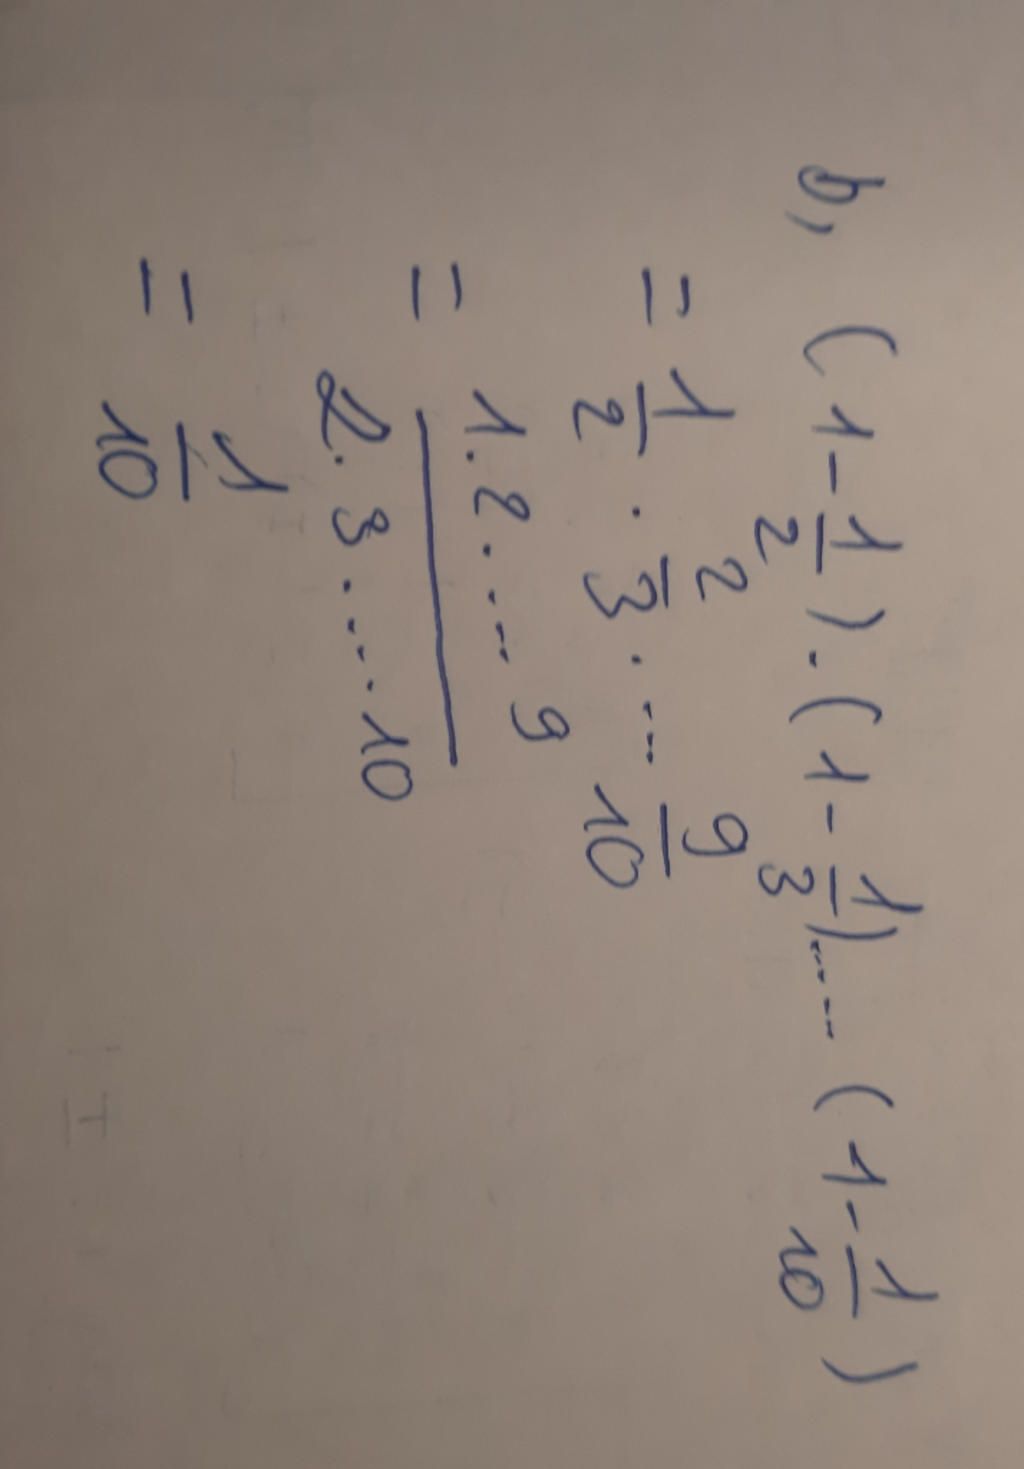 b, (1-1/2).(1-1/3)..... (1-1/10)
= 1/2 . 2/3 . ... 9/10
= 1.2. ... 9 / 2.3. ... .10
= 1/10